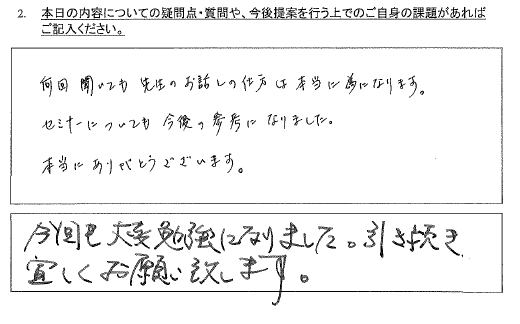 2. 本日の内容についての疑問点・質問や、今後提案を行う上でのご自身の課題があれば
ご記入ください。
何回聞いても先生のお話しの仕方は本当に為になります。
セミナーについても今後の参考になりました。
本当にありがとうございます。
今回も大変勉強になりました。引き続き
宜しくお願い致します。